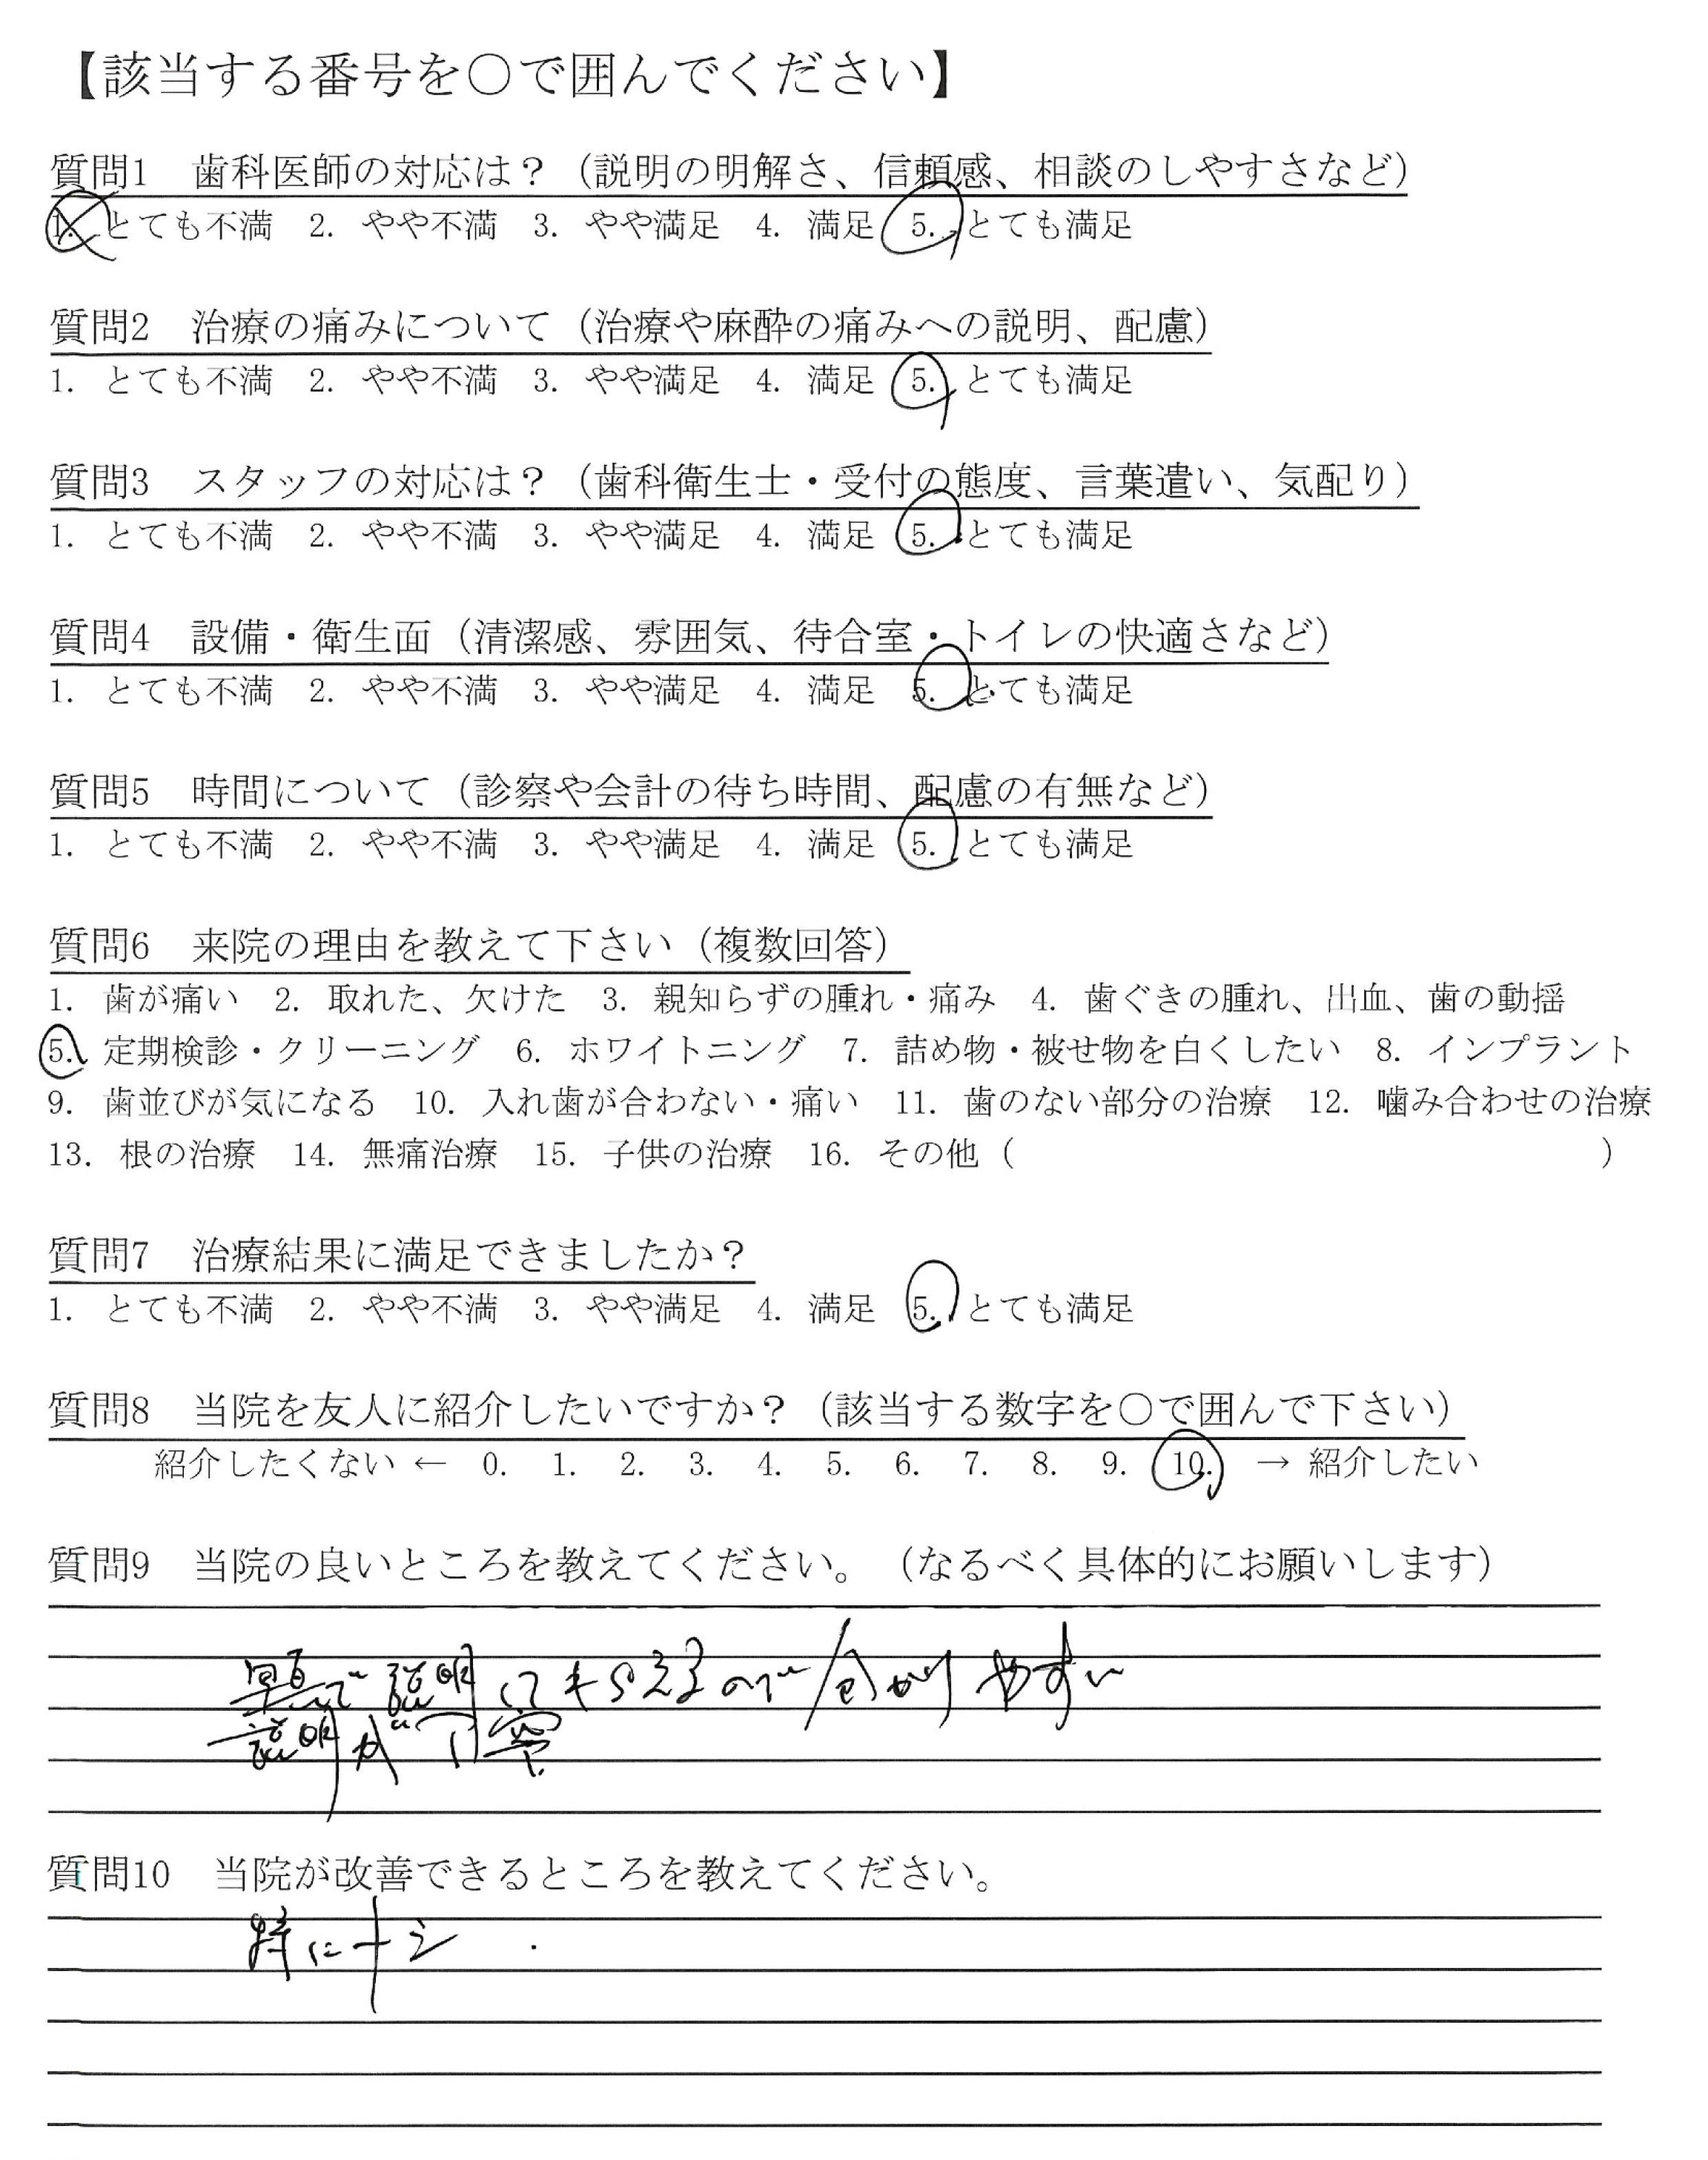 【該当する番号を〇で囲んでください】
質問1　歯科医師の対応は？（説明の明解さ、信頼感、相談のしやすさなど）
1. とても不満　2. やや不満　3. やや満足　4. 満足　5. とても満足
質問2　治療の痛みについて（治療や麻酔の痛みへの説明、配慮）
1. とても不満　2. やや不満　3. やや満足　4. 満足　5. とても満足
質問3　スタッフの対応は？（歯科衛生士・受付の態度、言葉遣い、気配り）
1. とても不満　2. やや不満　3. やや満足　4. 満足　5. とても満足
質問4　設備・衛生面（清潔感、雰囲気、待合室・トイレの快適さなど）
1. とても不満　2. やや不満　3. やや満足　4. 満足　5. とても満足
質問5　時間について（診察や会計の待ち時間、配慮の有無など）
1. とても不満　2. やや不満　3. やや満足　4. 満足　5. とても満足
質問6　来院の理由を教えて下さい（複数回答）
1. 歯が痛い　2. 取れた、欠けた　3. 親知らずの腫れ・痛み　4. 歯ぐきの腫れ、出血、歯の動揺
5. 定期検診・クリーニング　6. ホワイトニング　7. 詰め物・被せ物を白くしたい　8. インプラント
9. 歯並びが気になる　10. 入れ歯が合わない・痛い　11. 歯のない部分の治療　12. 噛み合わせの治療
13. 根の治療　14. 無痛治療　15. 子供の治療　16. その他（　　　　　）
質問7　治療結果に満足できましたか？
1. とても不満　2. やや不満　3. やや満足　4. 満足　5. とても満足
質問8　当院を友人に紹介したいですか？（該当する数字を〇で囲んで下さい）
紹介したくない ← 0. 1. 2. 3. 4. 5. 6. 7. 8. 9. 10. → 紹介したい
質問9　当院の良いところを教えてください。（なるべく具体的にお願いします）
写真で説明してもらえるので分かりやすい
説明が丁寧
質問10　当院が改善できるところを教えてください。
特にナシ